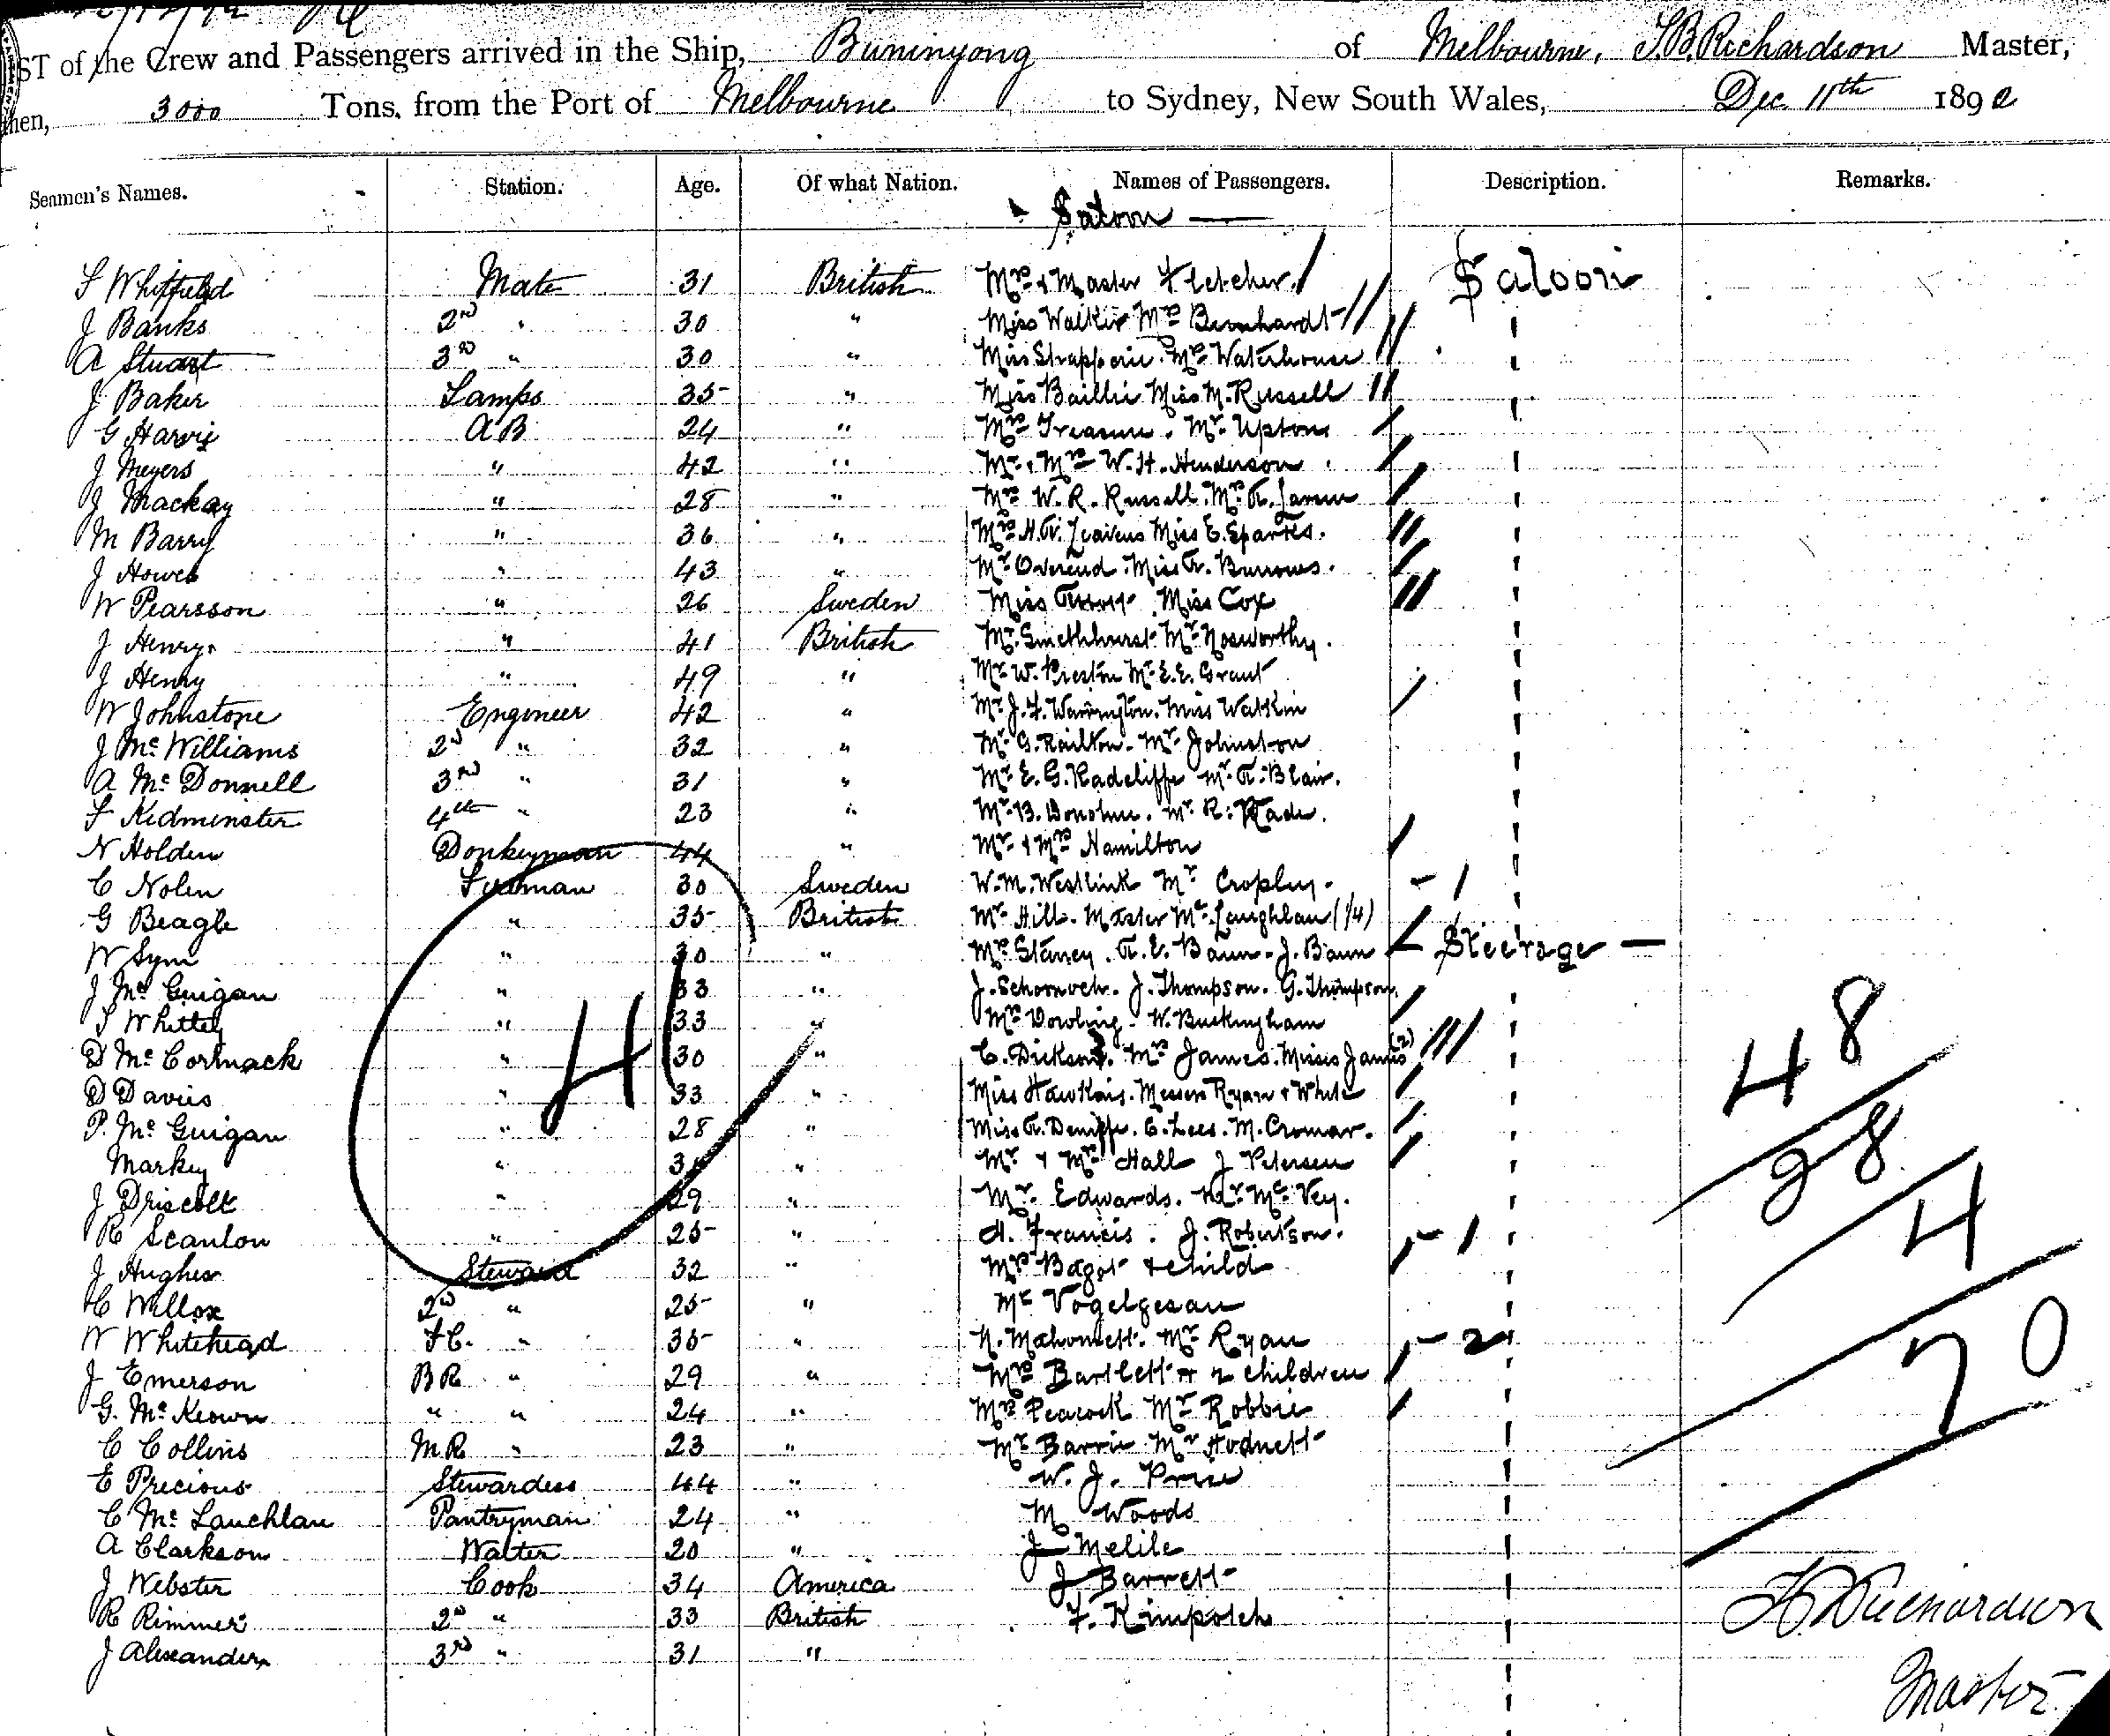 ST of the Crew and Passengers arrived in the Ship, Buninyong of Melbourne, S.B. Richardson Master,
3000 Tons, from the Port of Melbourne to Sydney, New South Wales, Dec 11th 1892
Seamen's Names. Station. Age. Of what Nation. Names of Passengers. Description. Remarks.
Saloon
S Whitfield Mate 31 British Mrs & Master Fletcher Saloon
J Banks 2nd " 30 " Miss Walker Mrs Bernhardt
A Stuart 3rd " 30 " Miss Mrs Waterhouse
J Baker Lamps 35 " Miss Baillie Miss M. Russell
G Harvie AB 24 " Mrs Treasure. Mr. Upton
J Meyers " 42 " Mr & Mrs W. H. Henderson
J Mackay " 28 " Mrs W. R. Russell. Mr. A.
M Barry " 36 " Mrs H. A. Miss E. Sparkes.
J Howes " 43 " Mr Overend Miss A. Burrows.
W Pearsson " 26 Sweden Miss Miss Cox
J Henry " 41 British Mr. Smethhurst Mr Nosworthy.
J Henry " 49 " Mr W. Preston Mr. E. E. Grant
W Johnstone Engineer 42 " Mr J. F. Warrington. Miss Watkin
J McWilliams 2nd " 32 " Mr G. Railton. Mr. Johnston
A McDonnell 3rd " 31 " Mr E. G. Radcliffe Mr. A. Blair.
F Kidminster 4th " 23 " Mr. B. Donohue. Mr. R.
N Holden Donkeyman 44 " Mr & Mrs Hamilton
C Nolen Fireman 30 Sweden W. M. Westlink Mr Cropley. - 1
G Beagle " 35 British Mr Hill. Master McLaughlan (1/4)
W Sym " 30 " Mrs Stancy. A. E. Baun. J. Baun - Steerage -
J McGuigan " 33 " J. J. Thompson. G. Thompson
S Whittey " 33 " Mrs Dowling. W. Buckingham
D McCormack " 30 " C. Dickson. Mrs James. Misses James (2)
D Davies " 33 " Miss Hawkins. Messrs Ryan & White
P. McGuigan " 28 " Miss A. C. Lees. M. Cromar.
Markey " " Mr & Mrs Hall J Petersen
J Driscoll " 29 " Mr. Edwards. Mr. McVey.
R Scanlon " 25 " H. Francis. J. Robertson. - 1
J Hughes Steward 32 " Mrs Bagot & child
C Willox 2nd " 25 " Mr Vogelgesan
W Whitehead FC. " 35 " N. Mahomett. Mr Ryan - 2
J Emerson BR " 29 " Mrs Bartlett & 2 children
G. McKeown " " 24 " Mrs Peacock Mr Robbie
C Collins MR " 23 " Mr Barrie Mr Hodnett
E Precious Stewardess 44 " W. J. Price
C McLauchlan Pantryman 24 " M Woods
A Clarkson Waiter 20 " J Melile
J Webster Cook 34 America J Barrett
R Rimmer 2nd " 33 British F. Kimpotch
J Alexander 3rd " 31 "
H
48
28
4
20
Richardson
Master